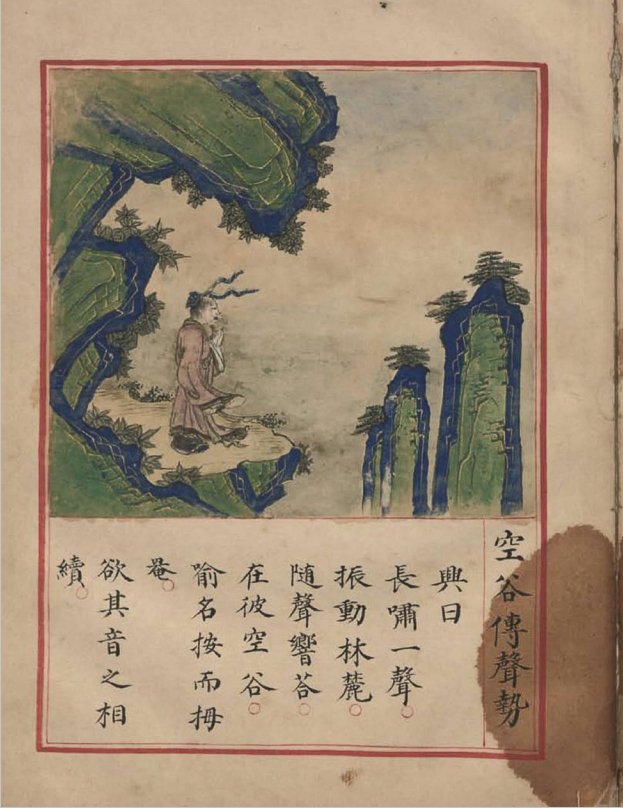 空谷傳聲勢
興曰
長嘯一聲。
振動林麓。
随聲響荅。
在彼空谷。
喻名按而拇
罨。
欲其音之相
續。